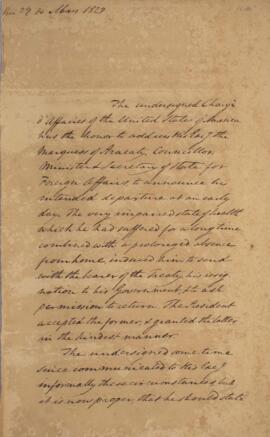 29 de Março 1829
The undersigned Chargé
d'Affaires of the United States of America
has the honor to address His Excy the
Marquess of Aracaty, Councillor,
Minister & Secretary of State for
Foreign Affairs to announce his
intended departure at an early
day. The very impaired state of health
which he had suffered for a long time
combined with a prolonged absence
from home, induced him to send
with the bearer of the Treaty, his resig-
nation to his Government, & to ask
permission to return. The President
accepted the former, & granted the latter
in the kindest manner.
The undersigned some time
since communicated to His Excy
informally these circumstances, but
it is now proper, that he should state